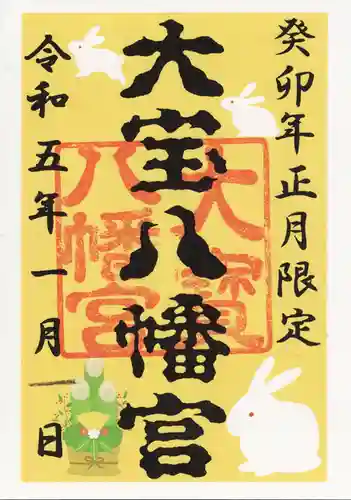 癸卯年正月限定
大宝八幡宮
大寶
八幡宮
令和五年一月一日